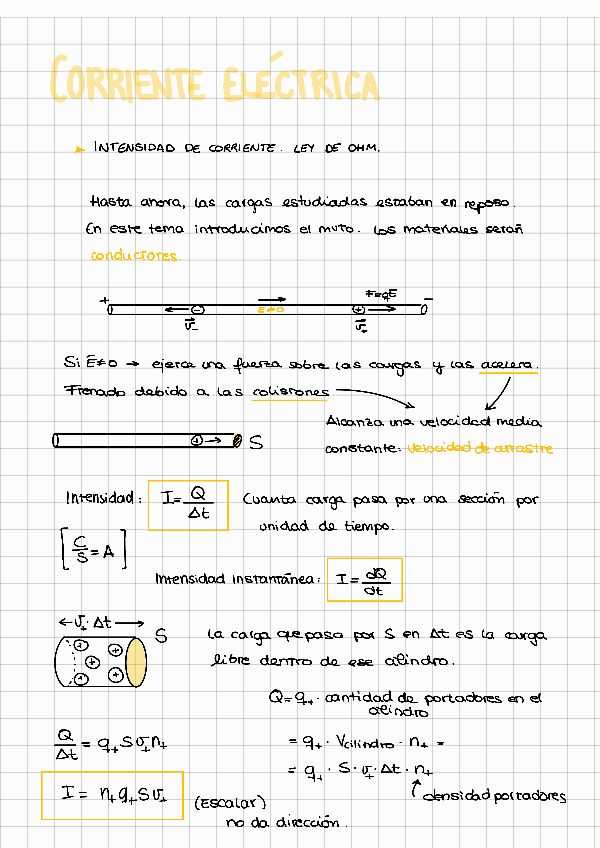 CORRIENTE ELÉCTRICA
➤ INTENSIDAD DE CORRIENTE. LEY DE OHM.
Hasta ahora, las cargas estudiadas estaban en reposo.
En este tema introducimos el mvto. Los materiales serán
conductores.
+ − F=qE −
E≠0 +
v₋ v₊
Si E≠0 → ejerce una fuerza sobre las cargas y las acelera.
Frenado debido a las colisiones
Alcanza una velocidad media
+ → S
constante: velocidad de arrastre
Intensidad: I = Q/Δt Cuanta carga pasa por una sección por
unidad de tiempo.
[C/s = A]
Intensidad instantánea: I = dQ/dt
← v₊ · Δt → S
La carga que pasa por S en Δt es la carga
libre dentro de ese cilindro.
Q = q₊ · cantidad de portadores en el
cilindro
Q/Δt = q₊ S v₊ n₊
= q₊ · Vcilindro · n₊ =
= q₊ · S · v₊ · Δt · n₊
densidad portadores
I = n₊ q₊ S v₊
(Escalar)
no da dirección.